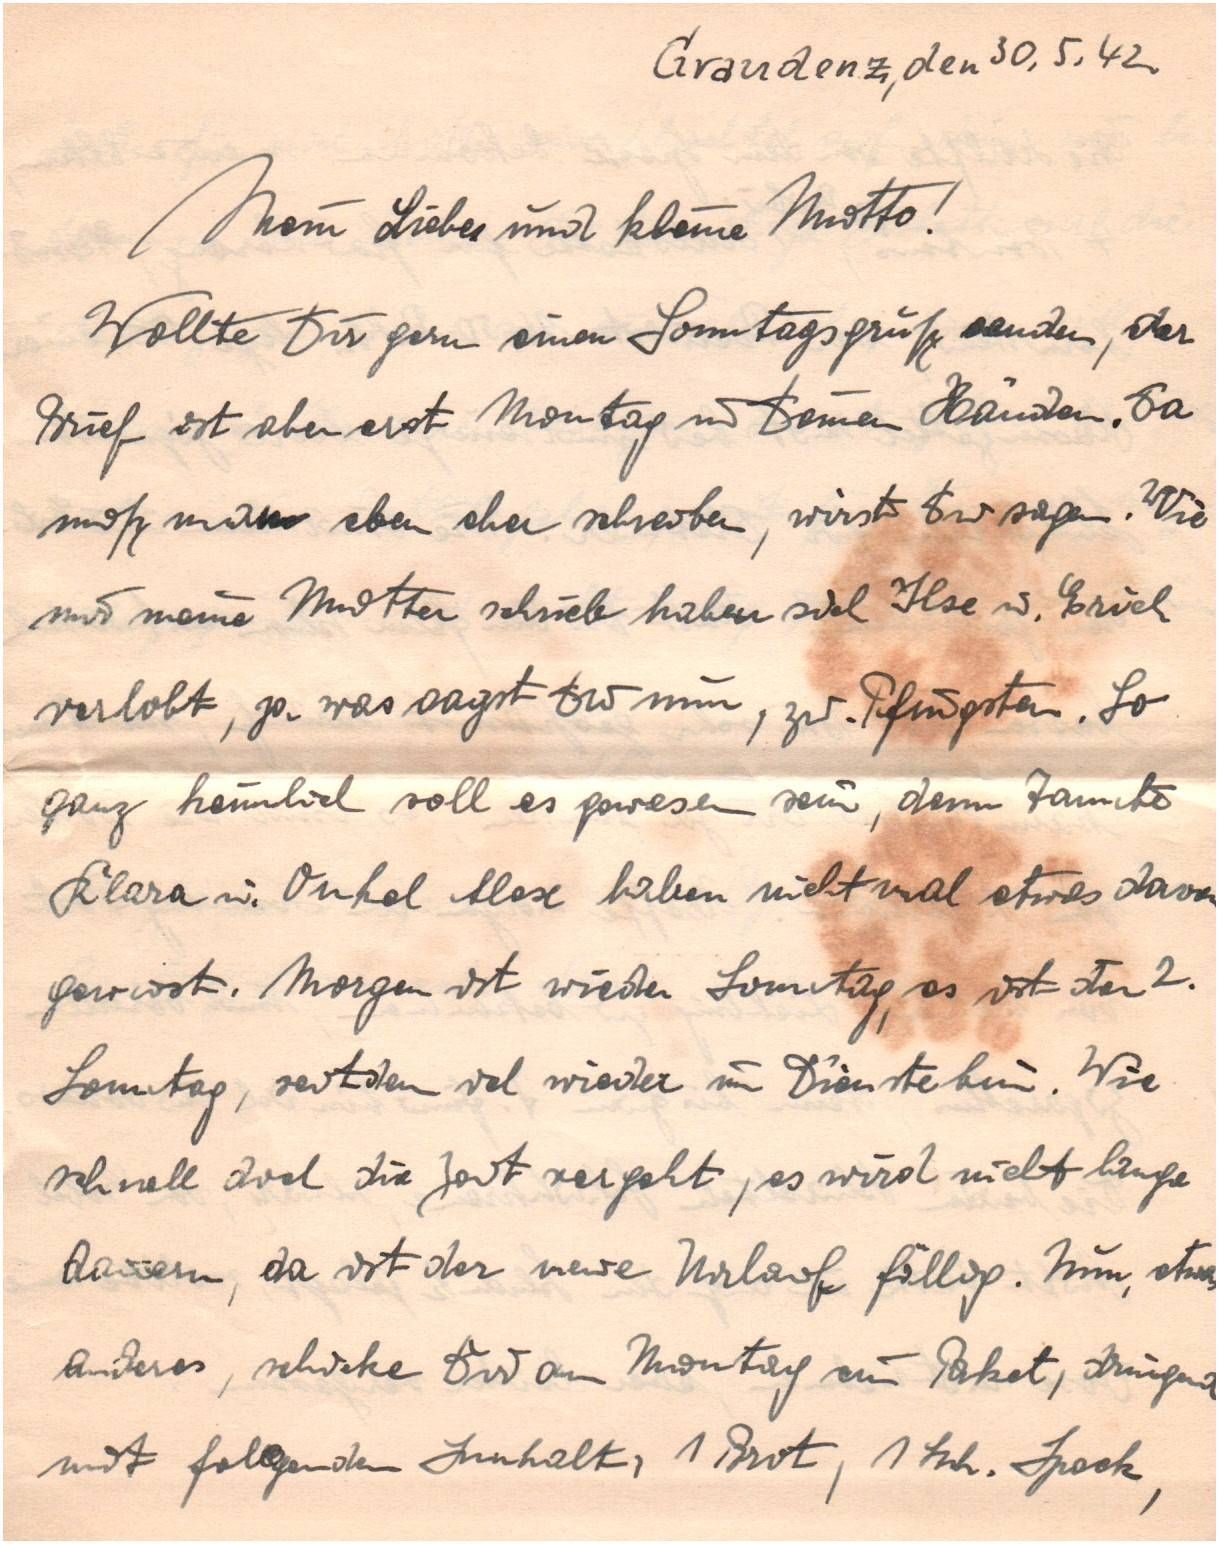 Graudenz, den 30. 5. 42.
Mein Liebes und kleine Mutto!
Wollte Dir gern einen Sonntagsgruß senden, der
Brief ist aber erst Montag in Deinen Händen. Da
muß man eben eher schreiben, wirst Du sagen. Wie
mir meine Mutter schrieb haben sich Ilse u. Erich
verlobt, ja was sagst Du nun, zu Pfingsten. So
ganz heimlich soll es gewesen sein, denn Tante
Klara u. Onkel Alex haben nicht mal etwas davon
gewusst. Morgen ist wieder Sonntag, es ist der 2.
Sonntag, seitdem ich wieder im Dienste bin. Wie
schnell doch die Zeit vergeht, es wird nicht lange
dauern, da ist der neue Urlaub fällig. Nun, etwas
anderes, schicke Dir am Montag ein Paket, dringend
mit folgenden Innhalt, 1 Brot, 1 Speck,